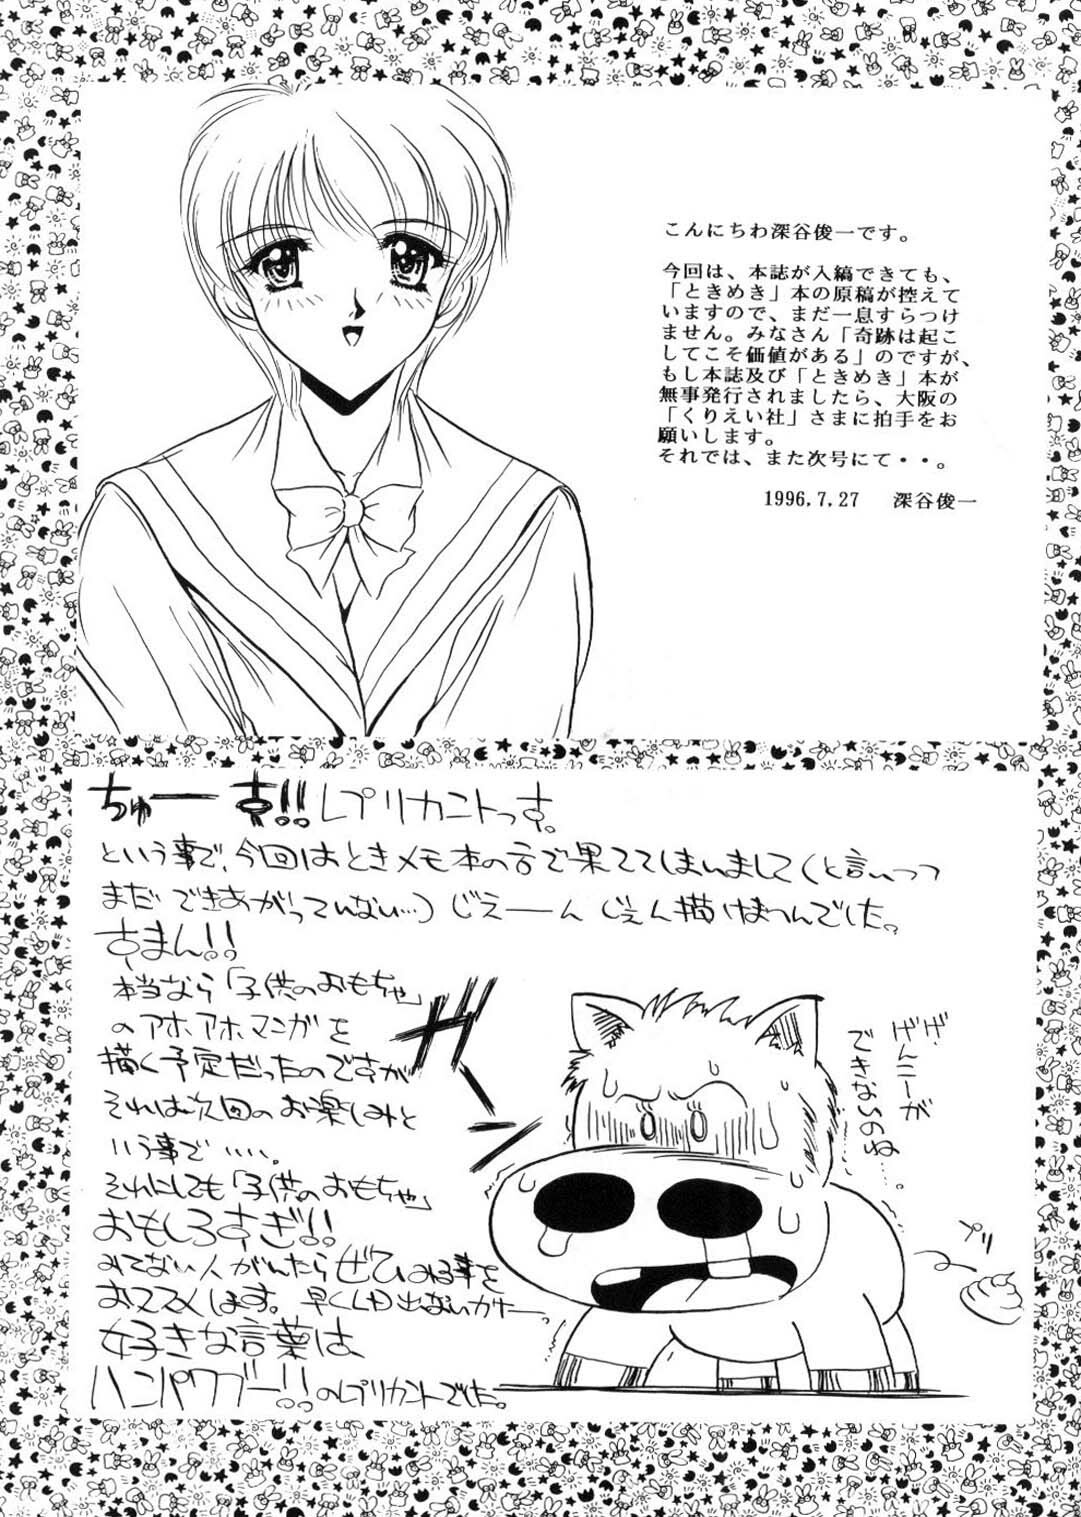 こんにちわ深谷俊一です。
今回は、本誌が入稿できても、
「ときめき」本の原稿が控えて
いますので、まだ一息すらつけ
ません。みなさん「奇跡は起こ
してこそ価値がある」のですが、
もし本誌及び「ときめき」本が
無事発行されましたら、大阪の
「くりえい社」さまに拍手をお
願いします。
それでは、また次号にて・・。
1996,7,27 深谷俊一
ちゅーす!!レプリカントっす。
という事で、今回はときメモ本の方で果ててしまいまして(と言いつつ
まだできあがっていない…)じえーんじぇん描けませんでした。
すまん!!
本当なら「子供のおもちゃ」
のアホアホマンガを
描く予定だったのですが
それは次回のお楽しみと
いう事で……。
それにしても「子供のおもちゃ」
おもしろすぎ!!
みてない人がいたらぜひみる事を
おススメします。早くLD出ないかなー。
好きな言葉は
ハンパワブー!!のレプリカントでした。
ガーン
げ、げんこーが
できないのね……。
プリ